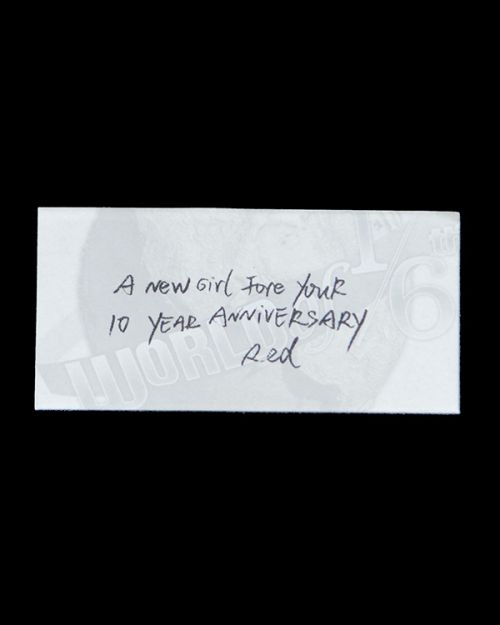 A new Girl Fore Your
10 YEAR ANNIVERSARY
Red
WORLD of 1th/6th